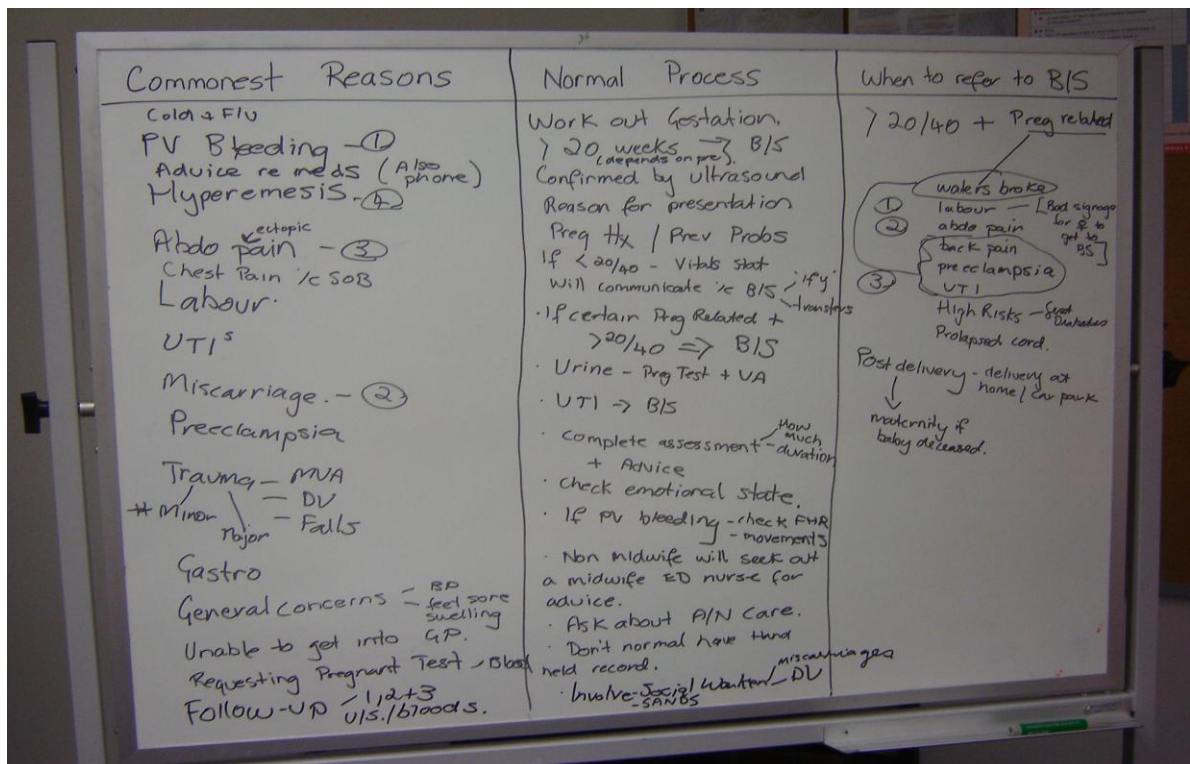 Commonest Reasons
Cold & Flu
PV Bleeding - ①
Advice re meds (Also phone)
Hyperemesis - ④
ectopic
Abdo pain - ③
Chest Pain /c SOB
Labour.
UTIs
Miscarriage. - ②
Preeclampsia
Trauma - MVA
- DV
- Falls
* Minor
Major
Gastro
General concerns - BP
- feel sore
swelling
Unable to get into GP.
Requesting Pregnant Test, Blood
Follow-up 1, 2 + 3
U/S. / bloods.
Normal Process
Work out Gestation.
> 20 weeks → B/S
(depends on pre).
Confirmed by ultrasound
Reason for presentation
Preg Hx / Prev Probs
If < 20/40 - Vitals stat
Will communicate /c B/S - "if y"
- transfers
· If certain Preg Related +
> 20/40 => B/S
· Urine - Preg Test + UA
· UTI → B/S
· Complete assessment - How much
- duration
+ Advice
· Check emotional state.
· If PV bleeding - check FHR
- movements
· Non midwife will seek out
a midwife ED nurse for
advice.
· Ask about A/N care.
· Don't normal have Hand
held record.
· Involve - Social Worker - miscarriages
- DV
- SANDS
When to refer to B/S
> 20/40 + Preg related
waters broke
① labour - [Bad signage
for ♀ to
get to
BS]
② abdo pain
back pain
preeclampsia
③ UTI
High Risks - Gest Diabetes
Prolapsed cord.
Post delivery - delivery at
home / car park
maternity if
baby deceased.